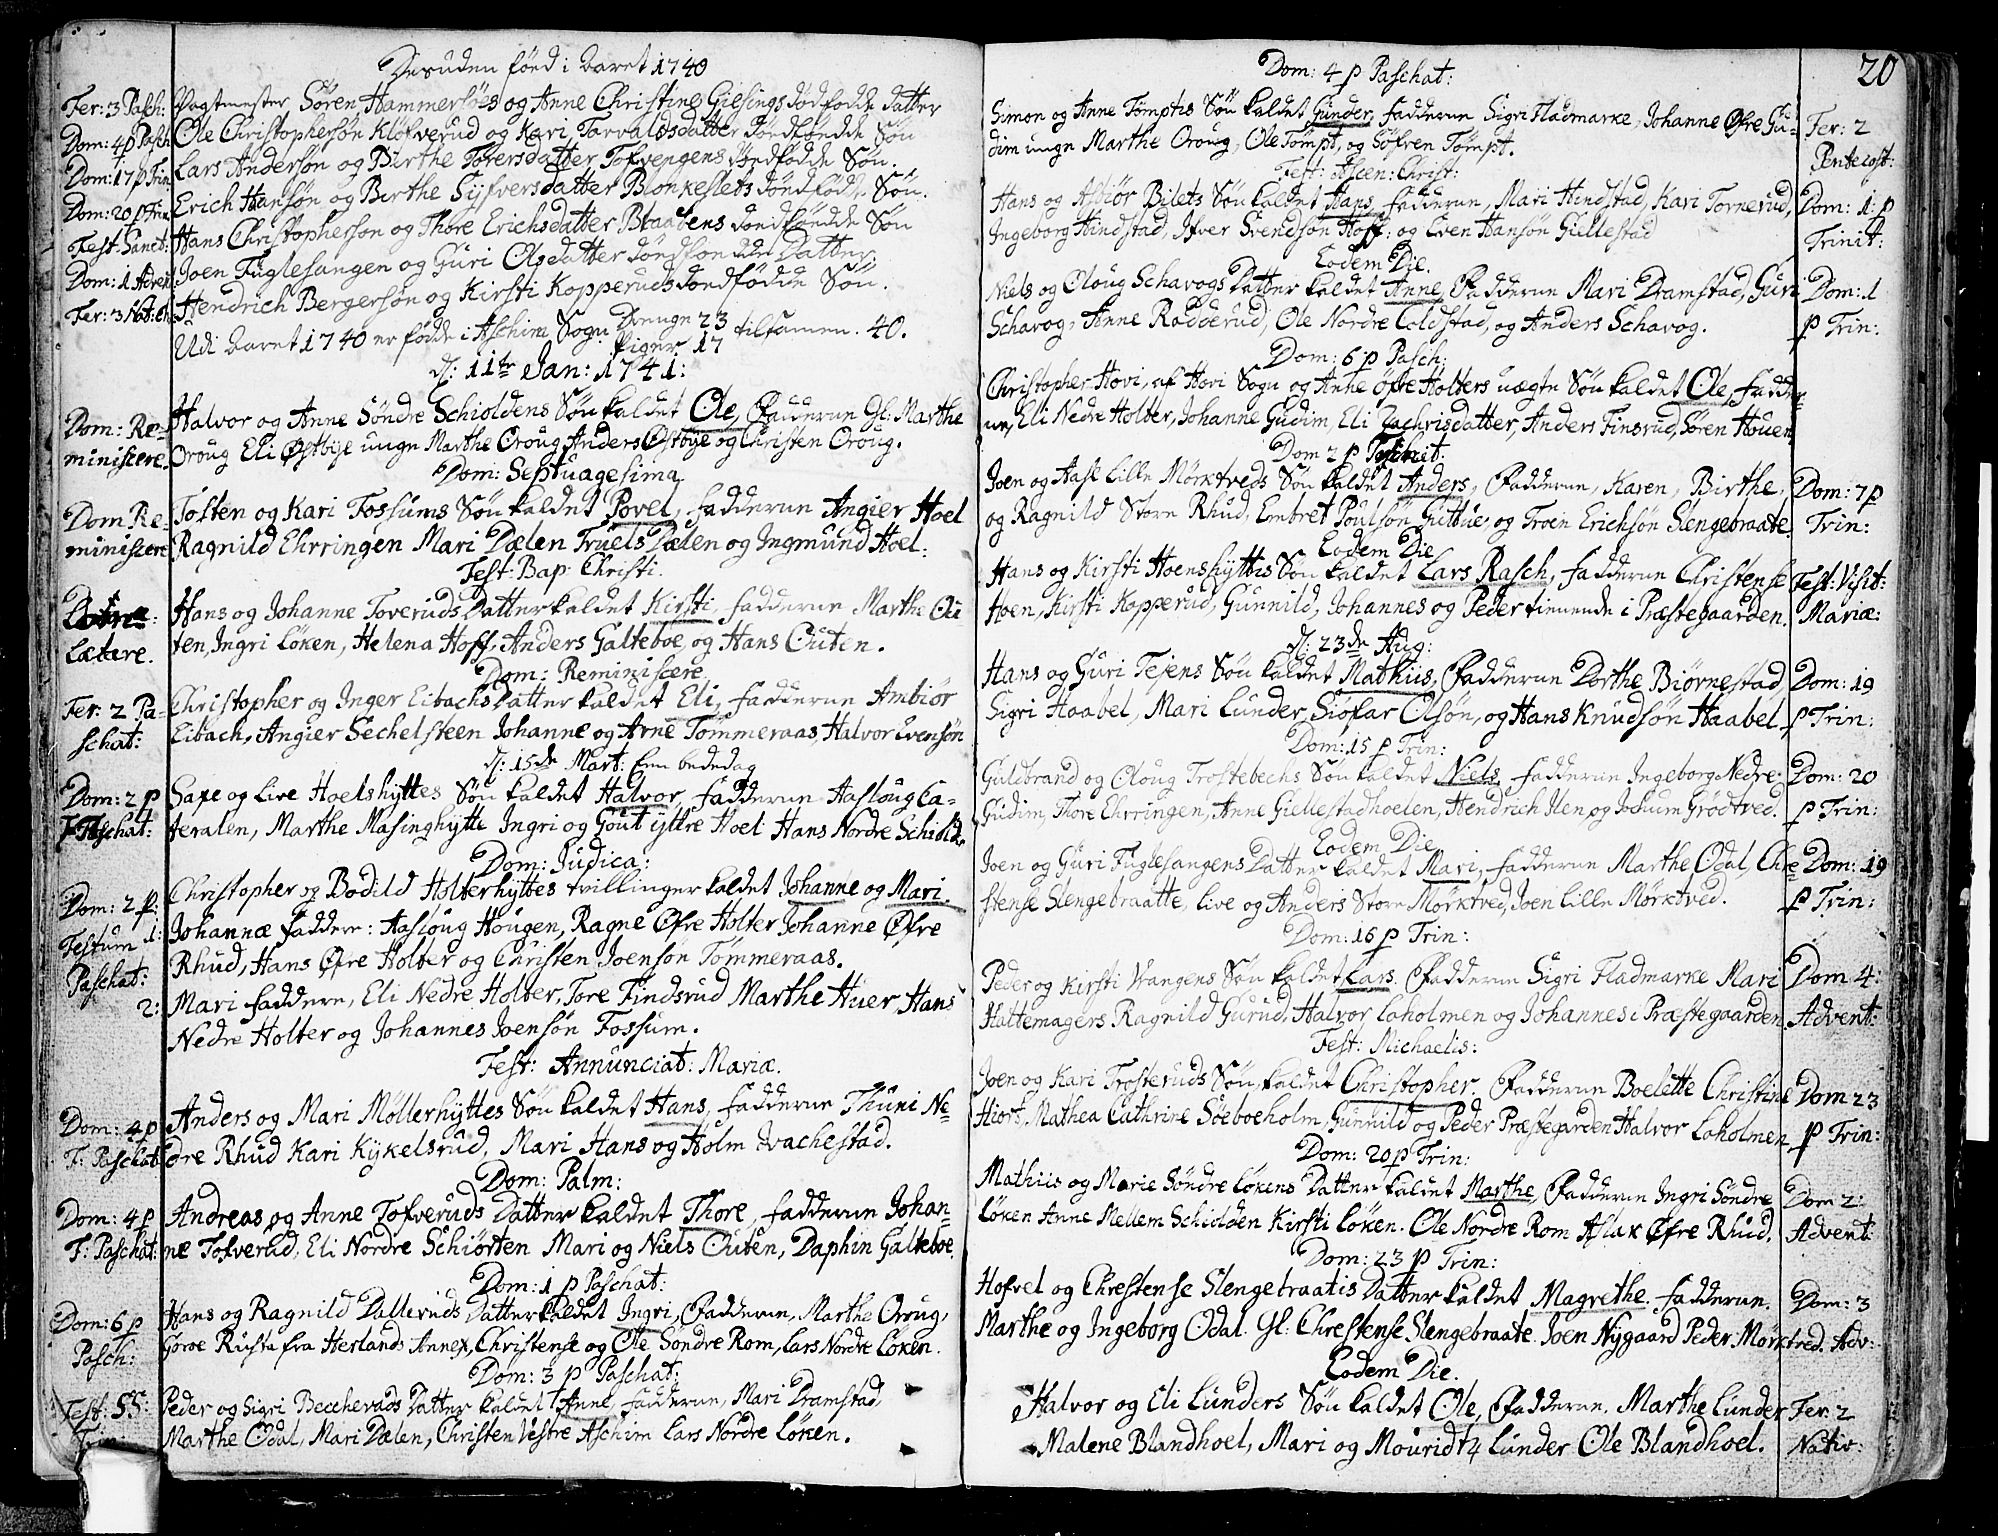 Desuden föed i Aaret 1740
Fer: 3 Pasch: Vagtmester Sören Hammersöes og Anne Christine Giesings dödfödde datter
Dom: 4 p Pasch Ole Christophersön Klökverud og Kari Tarvaldsdatter döedföedde Sön
Dom: 17 p Trin Lars Andersön og Birthe Torersdatter Tofvengens döedfödde Sön.
Dom: 20 p Trin Erich Hansön og Birthe Syfversdatter Blonkeslets döedfödde Sön.
Fest: Sanct: Hans Christophersön og Thore Erichsdatter Blaabens dödföedde Sön
Dom: 1 Adven Joen Fuglesangen og Guri Olsdatter döedföedde Datter.
Fer: 3 Nat: Ch Hendrich Bergersön og Kirsti Kopperuds dödfödde Sön.
Udi Aaret 1740 er födde i Aschim Sogn Drenge 23 Piger 17 tilsamen 40.
d: 11te Jan: 1741:
Dom: Re- Halvor og Anne Söndre Schioldens Sön kaldet Ole, Fadderne Gl: Marthe
miniscere. Oroug Eli Östbye unge Marthe Oroug Anders Östbye og Christen Oroug.
Dom: Septuagesima
Dom Re- Tosten og Kari Fossums Sön kaldet Povel, fadderne Angier Hoel
miniscere Ragnild Ehrringen Mari Dælen Truels Dælen og Ingmund Hoel.
Fest: Bap: Christi.
Hans og Johanne Toveruds Datter kaldet Kirsti, fadderne Marthe Ou
Lætare. ten, Ingri Löken, Helena Hoff, Anders Galteboe, og Hans Outen.
Dom: Reminiscere
Fer: 2 Pa- Christopher og Inger Eibachs Datter kaldet Eli, fadderne Ambiör
schat: Eibach, Angier Sechelsteen Johanne og Arne Tömmeraas, Halvor Evensön
d: 15de Mart: Een bededag
Dom: 2 p Saxe og Live Hoelshyttes Sön kaldet Halvor, fadderne Aasloug La-
Paschat: teralen, Marthe Masinghytte Ingri og Gout yttre Hoel Hans Nordre Schiold
Dom: Judica:
Dom: 2 p: Christopher og Bodild Holterhyttes tvillinger kaldet Johanne og Mari.
Festum 1: Johannæ faddere: Aasloug Hougen, Ragne Öfre Holter Johanne Öfre
Paschat: Rhud, Hans Öfre Holter og Christen Joensön Tömmeraas.
2: Mari faddere, Eli Nedre Holter, Tore Findsrud Marthe Huer, Hans
Nedre Holter og Johannes Joensön Fossum.
Fest: Annunciat: Mariæ.
Dom: 4 p Anders og Mari Möllerhyttes Sön kaldet Hans, fadderne Thuni Ne-
F: Paschat: dre Rhud Kari Kykelsrud, Mari Hans og Holm Vachestad.
Dom: Palm:
Dom: 4 p Andreas og Anne Tofveruds Datter kaldet Thore, fadderne Johan-
F: Paschat: ne Tofverud, Eli Nordre Schiörten Mari og Niels Outen, Daphin Galteboe.
Dom: 1 p Paschat:
Dom: 6 p Hans og Ragnild Dalleruds Datter kaldet Ingri, Fadderne, Marthe Oroug,
Pasch: Goroe Rusta fra Herlands Annex, Christense og Ole Söndre Rom, Lars Nordre Löken.
Dom: 3 p Paschat:
Fest: SS: Peder og Sigri Beccheruds Datter kaldet Anne, fadderne, Mari Dramstad,
Trin: Marthe Odal, Mari Dælen, Christen Vestre Aschim Lars Nordre Löken.
20
Dom: 4 p Paschat:
Simon og Anne Tömptes Sön kaldet Gunder, fadderne Sigri Fladmarke, Johanne Öfre Gu- Fer: 2
dim unge Marthe Oroug, Ole Tömpt, og Söfren Tömpt. Pentecost:
Fest: Ascen: Christ:
Hans og Asbiör Bilets Sön kaldet Hans, fadderne, Mari Hindstad, Kari Tornerud, Dom: 1: p
Ingeborg Hindstad, Ifver Svendsön Hoff: og Even Hansön Giellestad Trinit:
Eodem Die.
Niels og Oloug Schavogs Datter kaldet Anne, Fadderne Mari Dramstad, Guri Dom: 1
Schavog, Anne Radderud, Ole Nordre Coldstad, og Anders Schavog. p Trin:
Dom: 6 p Pasch:
Christopher Hovi, af Hovi Sogn og Anne öfre Holters uægte Sön kaldet Ole, fadder-
ne, Eli Nedre Holter, Johanne Gudim, Eli Zachrisdatter, Anders Finsrud, Sören Houen
Dom 2 p Trinit:
Joen og Aase Lille Mörktveds Sön kaldet Anders, Fadderne, Karen, Birthe, Dom: 7 p
og Ragnild Store Rhud, Embret Poulsön Guttue, og Troen Erichsön Slengebraate. Trin:
Eodem Die
Hans og Kirsti Hoenshyttes Sön kaldet Lars Rasch, fadderne Christense Fest: Visit:
Hoen, Kirsti Kopperud, Gunnild, Johannes og Peder tienende i Præstegaarden. Mariæ:
d: 23de Aug:
Hans og Guri Tejens Sön kaldet Mathiis, Fadderne Dorthe Biörnestad, Dom: 19
Sigri Haabel, Mari Lunder, Siofar Olsön, og Hans Knudsön Haabel. p Trin:
Dom: 15 p Trin:
Guldbrand og Oloug Trostebechs Sön kaldet Niels, fadderne Ingeborg Nedre Dom: 20
Gudim, Thore Ehrringen, Anne Giellestadhoelen, Hendrich Ilen og Jochum Grödtved. p Trin:
Eodem Die
Joen og Guri Fuglesangens Datter kaldet Mari, fadderne Marthe Odal, Chre- Dom: 19
stense Slengebraatte, Live og Anders Store Mörktved, Joen Lille Mörktved. p Trin:
Dom: 16 p Trin:
Peder og Kirsti Vrangens Sön kaldet Lars. Fadderne Sigri Fladmarke Mari Dom 4:
Hattemagers Ragnild Gurud, Halvor Laholmen og Johannes i Præstegaarden Advent:
Fest: Michaelis:
Joen og Kari Trosteruds Sön kaldet Christopher. Fadderne Boelette Christine Dom 23
Hiort, Mathea Cathrine Söeboeholm, Gunnild og Peder Præstegarden Halvor Laholmen p Trin:
Dom: 20 p Trin:
Mathiis og Marie Söndre Lökens Datter kaldet Marthe, Fadderne Ingri Söndre Dom 2:
Löken Anne Mellem Schiolden Kirsti Löken. Ole Nordre Rom Aslak Öfre Rhud. Advent:
Dom: 23 p Trin:
Hofvel og Chrestense Slengebraatis Datter kaldet Magrethe. fadderne. Dom: 3
Marthe og Ingeborg Odal. Gl: Chrestense Slengebraate Joen Nygaard Peder Mörktved. Adv:
Eodem Die.
Halvor og Eli Lunders Sön kaldet Ole, Fadderne. Marthe Lunder Fer: 2
Malene Blandhoel, Mari og Mouridtz Lunder Ole Blandhoel. Nativ: